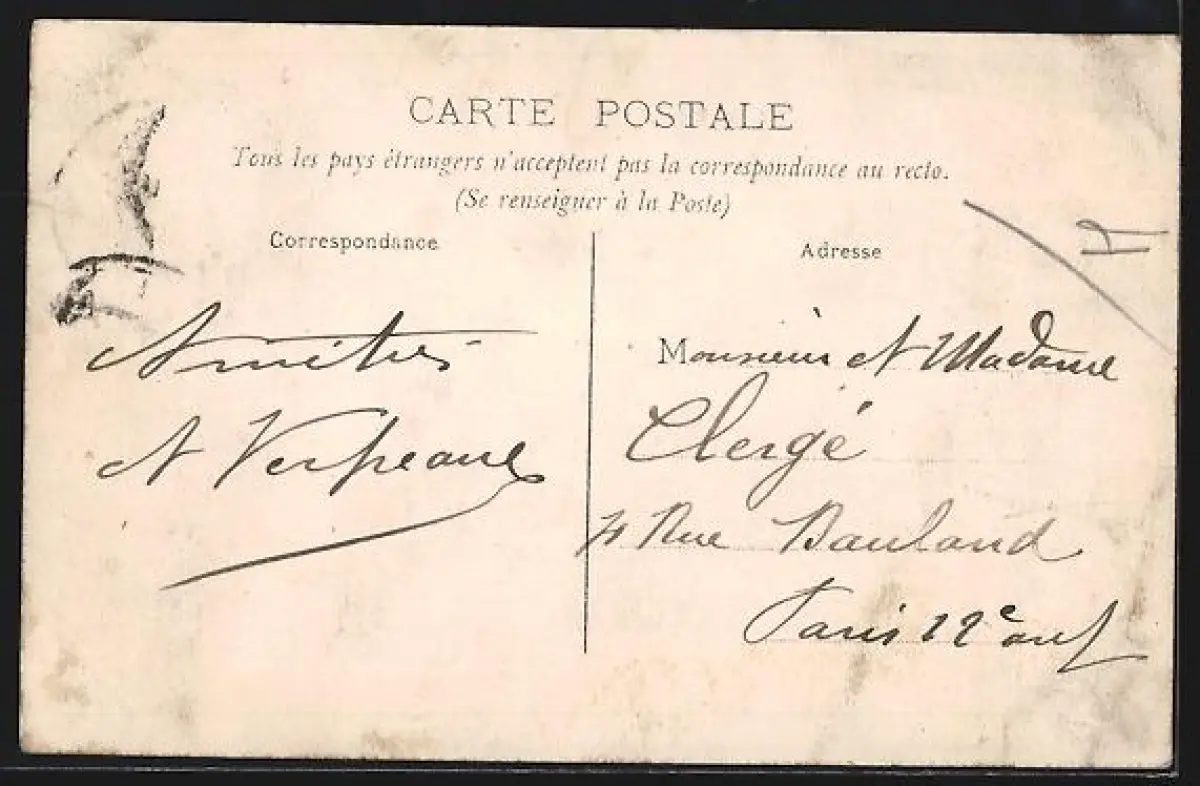 CARTE POSTALE
Tous les pays étrangers n'acceptent pas la correspondance au recto.
(Se renseigner à la Poste)
Correspondance
Amitiés
A Verpeaux
Adresse
Monsieur et Madame
Clergé
4 Rue Bauland
Paris 12e arr